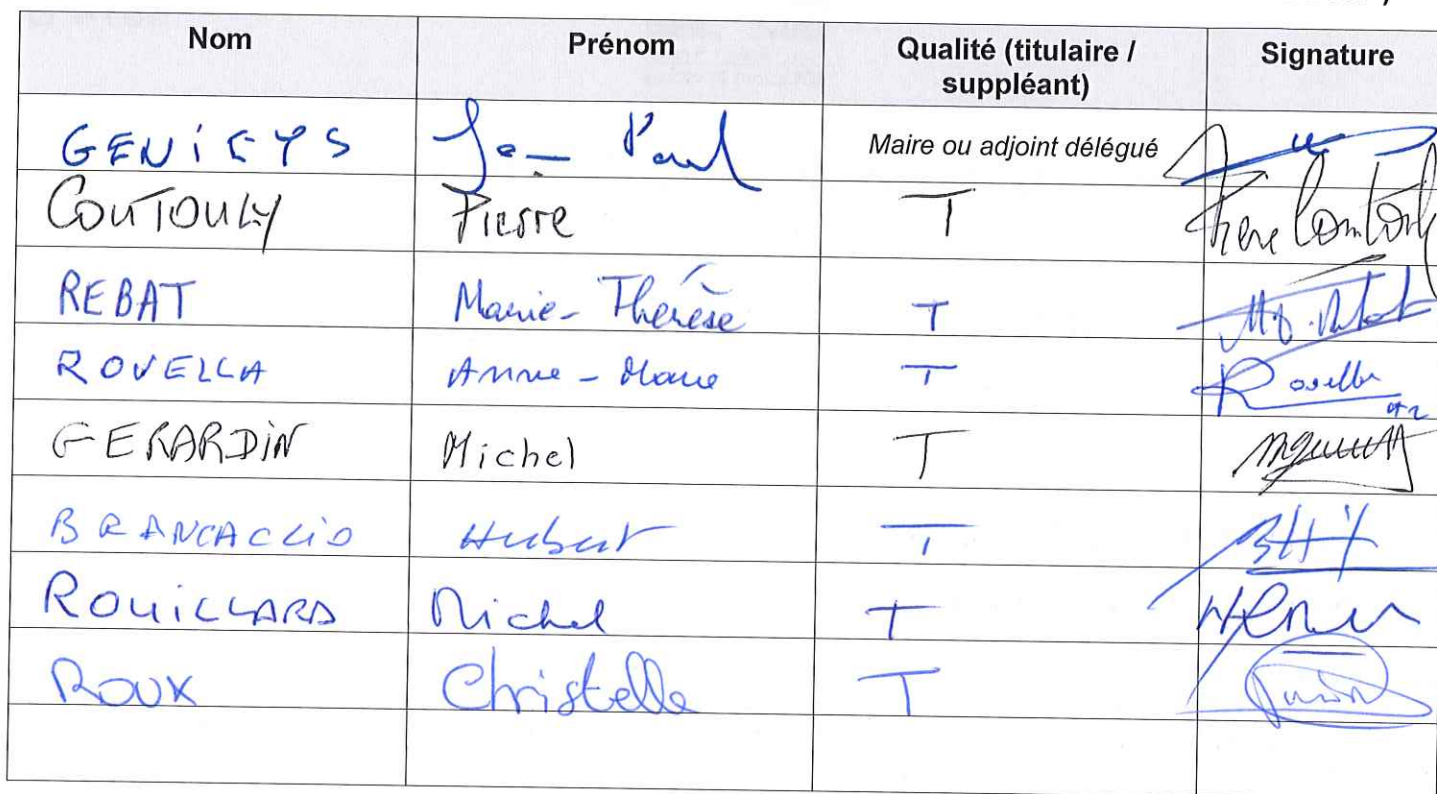 Nom Prénom Qualité (titulaire / suppléant) Signature
GENIEYS Jean Paul Maire ou adjoint délégué
COUTOULY Pierre T Pierre Coutouly
REBAT Marie-Thérèse T
ROVELLA Anne-Marie T Rovella
GERARDIN Michel T
BRANCACCIO Hubert T
ROUILLARD Michel T
ROUX Christelle T